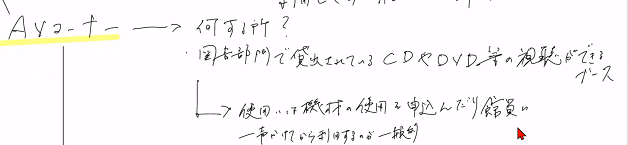 AVコーナー → 何する所?
・図書部門で貸出されているCDやDVD等の視聴ができる
ブース
→ 使用には機材の使用を申込んだり館員に
一声かけてから利用するのが一般的